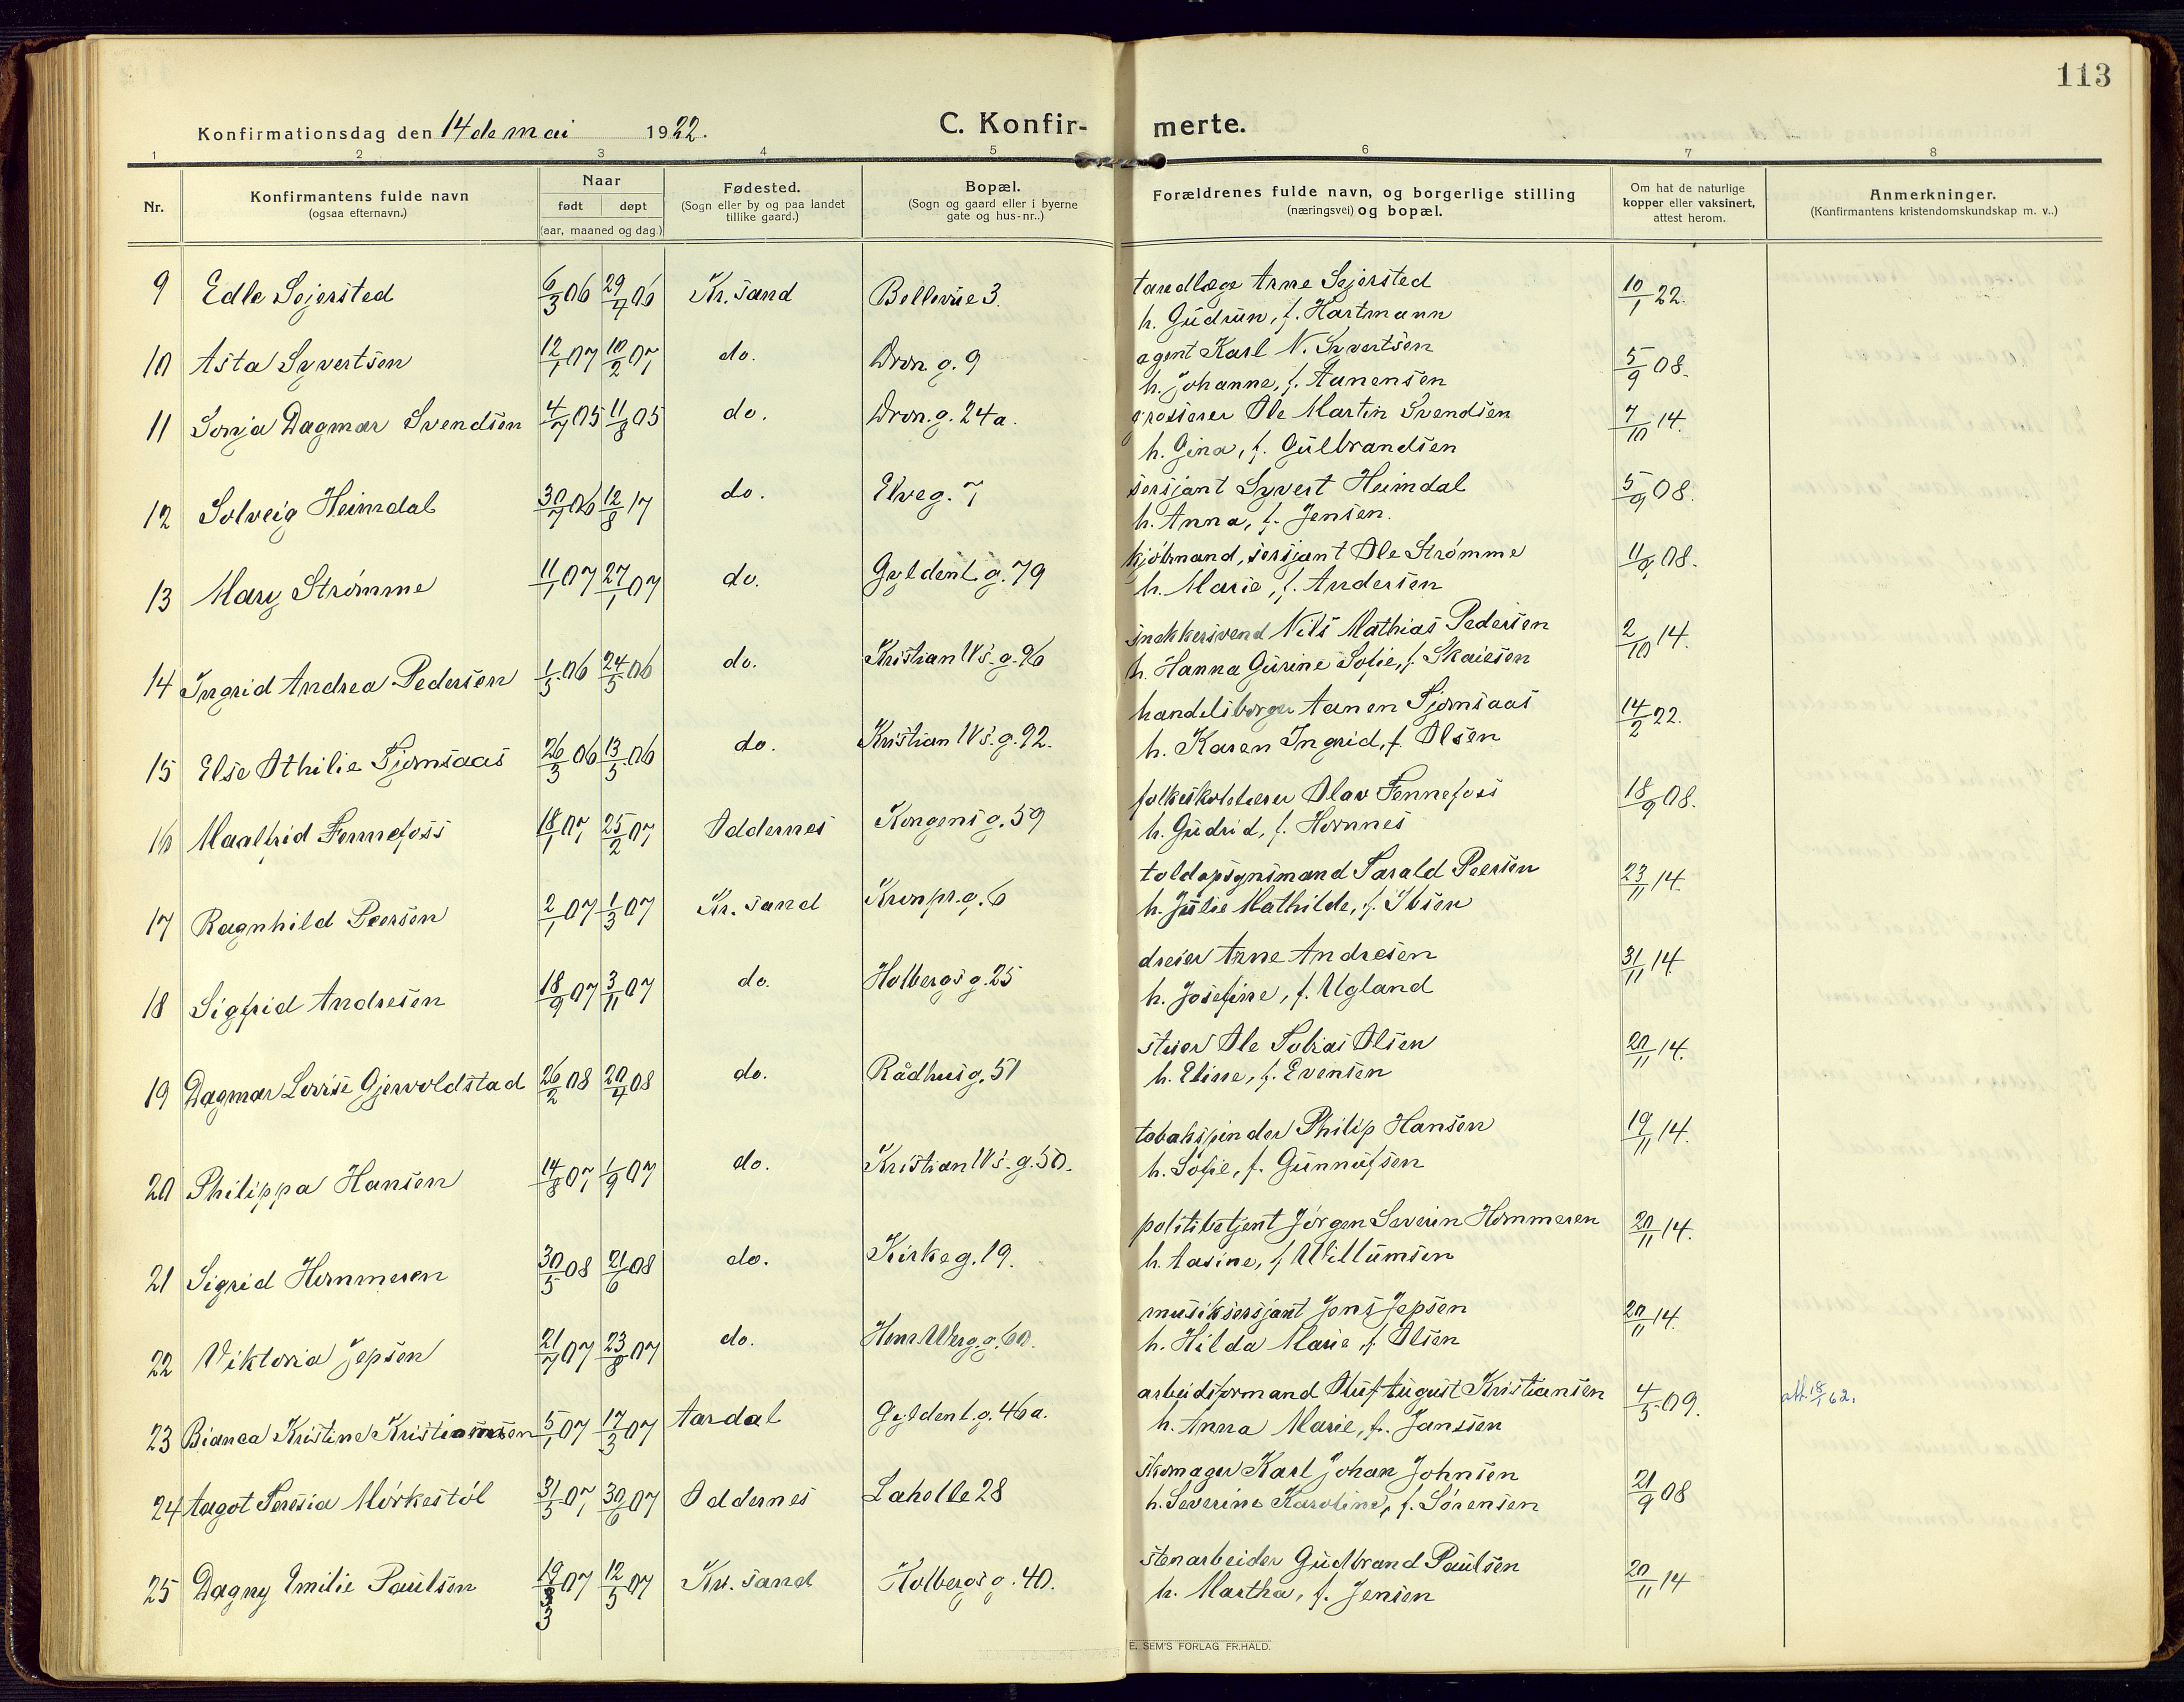 113
Konfirmationsdag den 14de mai 1922.
C. Konfir- merte.
1 2 3 4 5 6 7 8
Nr.
Konfirmantens fulde navn
(ogsaa efternavn.)
Naar
født døpt
(aar, maaned og dag.)
Fødested.
(Sogn eller by og paa landet
tillike gaard.)
Bopæl.
(Sogn og gaard eller i byerne
gate og hus-nr..)
Forældrenes fulde navn, og borgerlige stilling
(næringsvei) og bopæl.
Om hat de naturlige
kopper eller vaksinert,
attest herom.
Anmerkninger.
(Konfirmantens kristendomskundskap m. v..)
9 Edle Sejersted 6/3 06 29/7 06 Kr. sand Bellevue 3. tandlæge Arne Sejersted 10/1 22.
h. Gudrun, f. Hartmann
10 Asta Syvertsen 12/1 07 10/2 07 do. Dron. g. 9 agent Karl N. Syvertsen 5/9 08.
h. Johanne, f. Aanensen
11 Sonja Dagmar Svendsen 4/7 05 11/8 05 do. Dron. g. 24a. grosserer Ole Martin Svendsen 7/10 14.
h. Gina, f. Gulbrandsen
12 Solveig Heimdal 30/7 06 12/8 17 do. Elveg. 7 sersjant Syvert Heimdal 5/9 08.
h. Anna, f. Jensen.
13 Mary Strømme 11/1 07 27/1 07 do. Gyldenl. g. 79 kjøbmand, sersjant Ole Strømme 11/9 08.
h. Marie, f. Andersen
14 Ingrid Andrea Pedersen 1/5 06 24/5 06 do. Kristian IVs. g. 96 snekkersvend Nils Mathias Pedersen 2/10 14.
h. Hanna Gurine Sofie, f. Skaiesen
15 Else Othilie Tjomsaas 26/3 06 13/5 06 do. Kristian IVs. g. 92. handelsborger Aanen Tjomsaas 14/2 22.
h. Karen Ingrid, f. Olsen
16 Maalfrid Fennefoss 18/1 07 25/2 07 Oddernes Kongens g. 59 folkeskolelærer Olav Fennefoss 18/9 08.
h. Gudrid, f. Hornnes
17 Ragnhild Peersen 2/1 07 1/3 07 Kr. sand Kronpr. g. 6 toldopsynsmand Tarald Peersen 23/11 14.
h. Julie Mathilde, f. Ibsen
18 Sigfrid Andresen 18/9 07 3/11 07 do. Holbergs g. 25 dreier Arne Andresen 31/11 14
h. Josefine, f. Ugland
19 Dagmar Lovise Gjervoldstad 26/2 08 20/4 08 do. Rådhusg. 51 stuer Ole Tobias Olsen 20/11 14.
h. Eline, f. Evensen
20 Philippa Hansen 14/8 07 1/9 07 do. Kristian IVs. g. 50. tobakspinder Philip Hansen 19/11 14.
h. Sofie, f. Gunnufsen
21 Sigrid Hommeren 30/5 08 21/6 08 do. Kirkeg. 19. politibetjent Jørgen Severin Hommeren 20/11 14.
h. Aasine, f. Willumsen
22 Viktoria Jepsen 21/7 07 23/8 07 do. Henr. Werg. g. 60. musiksersjant Jens Jepsen 20/11 14.
h. Hilda Marie, f. Olsen
23 Bianca Kristine Kristiansen 5/1 07 17/3 07 Aardal Gyldenl. g. 46a. arbeidsformand Oluf August Kristiansen 4/5 09. att. 18/1 62.
h. Anna Marie, f. Janssen
24 Aagot Teresia Mørkestøl 31/5 07 30/6 07 Oddernes Lahelle 28 skomager Karl Johan Johnsen 21/9 08
h. Severine Karoline, f. Sørensen
25 Dagny Emilie Paulsen 19/3 07 12/5 07 Kr. sand Holbergs g. 40. stenarbeider Gudbrand Paulsen 20/11 14
h. Martha, f. Jensen
E. SEM'S FORLAG FR.HALD.